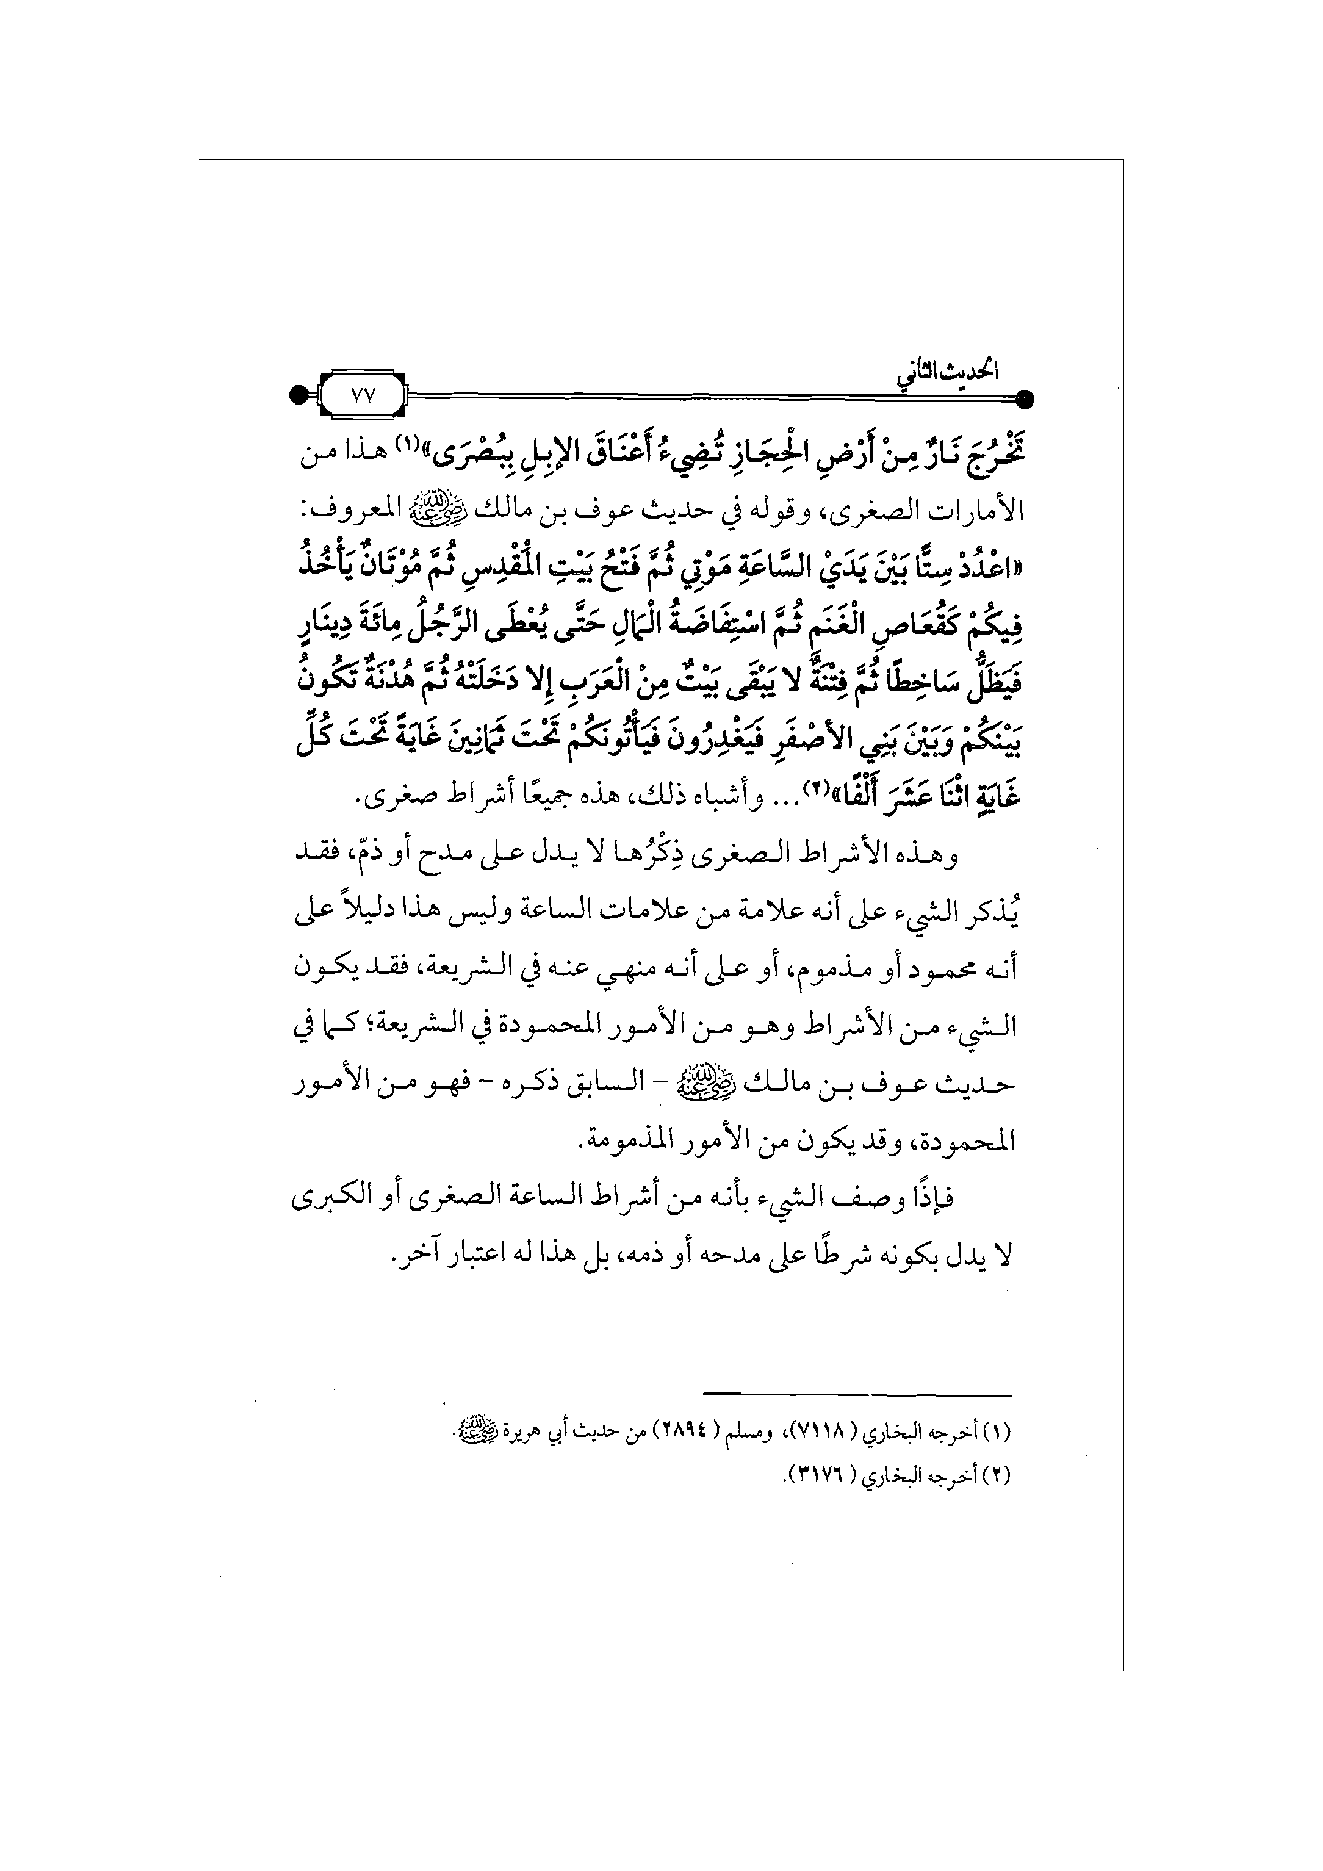 الحديث الثاني
٧٧
تَخْرُجَ نَارٌ مِنْ أَرْضِ الْحِجَازِ تُضِيءُ أَعْنَاقَ الإِبِلِ بِبُصْرَى»(١) هذا من
الأمارات الصغرى، وقوله في حديث عوف بن مالك رضي الله عنه المعروف:
«اعْدُدْ سِتًّا بَيْنَ يَدَيْ السَّاعَةِ مَوْتِي ثُمَّ فَتْحُ بَيْتِ الْمَقْدِسِ ثُمَّ مُوْتَانٌ يَأْخُذُ
فِيكُمْ كَقُعَاصِ الْغَنَمِ ثُمَّ اسْتِفَاضَةُ الْمَالِ حَتَّى يُعْطَى الرَّجُلُ مِائَةَ دِينَارٍ
فَيَظَلُّ سَاخِطًا ثُمَّ فِتْنَةٌ لا يَبْقَى بَيْتٌ مِنْ الْعَرَبِ إِلا دَخَلَتْهُ ثُمَّ هُدْنَةٌ تَكُونُ
بَيْنَكُمْ وَبَيْنَ بَنِي الأَصْفَرِ فَيَغْدِرُونَ فَيَأْتُونَكُمْ تَحْتَ ثَمَانِينَ غَايَةً تَحْتَ كُلِّ
غَايَةٍ اثْنَا عَشَرَ أَلْفًا»(٢)... وأشباه ذلك، هذه جميعًا أشراط صغرى.
وهذه الأشراط الصغرى ذِكْرُها لا يدل على مدح أو ذمّ، فقد
يُذكر الشيء على أنه علامة من علامات الساعة وليس هذا دليلاً على
أنه محمود أو مذموم، أو على أنه منهي عنه في الشريعة، فقد يكون
الشيء من الأشراط وهو من الأمور المحمودة في الشريعة؛ كما في
حديث عوف بن مالك رضي الله عنه - السابق ذكره - فهو من الأمور
المحمودة، وقد يكون من الأمور المذمومة.
فإذًا وصف الشيء بأنه من أشراط الساعة الصغرى أو الكبرى
لا يدل بكونه شرطًا على مدحه أو ذمه، بل هذا له اعتبار آخر.
(١) أخرجه البخاري (٧١١٨)، ومسلم (٢٨٩٤) من حديث أبي هريرة رضي الله عنه.
(٢) أخرجه البخاري (٣١٧٦).